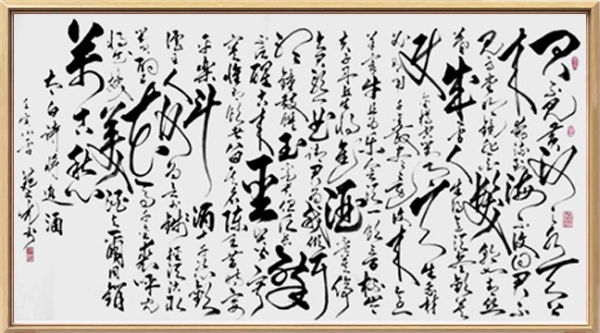 君不見黃河之水天上
來奔流到海不復回君不
見高堂明鏡悲白髮朝如青絲
暮成雪人生得意須盡歡莫
使金樽空對月天生我材
必有用千金散盡還復來烹
羊宰牛且為樂會須一飲三百杯岑
夫子丹丘生將進酒杯莫停
與君歌一曲請君為我傾耳聽
鐘鼓饌玉不足貴但願長醉不願
醒古來聖賢皆寂
寞惟有飲者留其名陳王昔時宴
平樂斗酒十千恣歡
謔主人何為言少錢徑須沽取
對君酌五花馬千金裘呼兒
將出換美酒與爾同銷
萬古愁
太白詩將進酒
壬寅